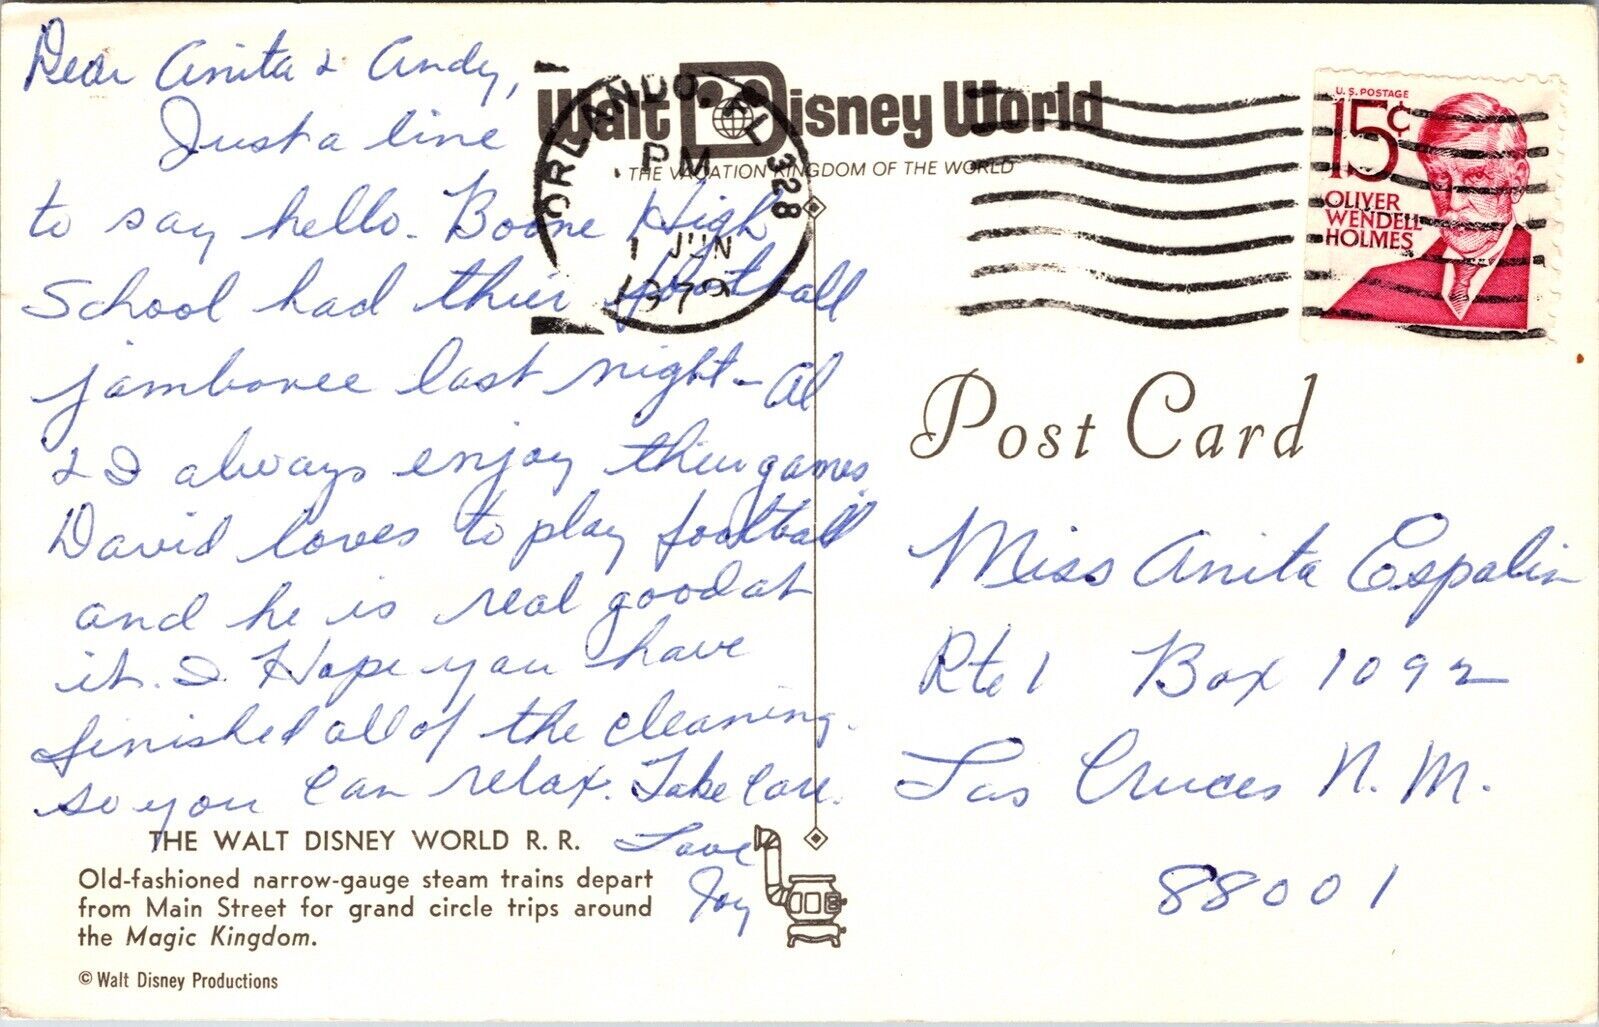 Dear Anita & Andy,
Just a line
to say hello. Boone High
School had their football
jamboree last night - Al
& I always enjoy their games.
David loves to play football
and he is real good at
it. I Hope you have
finished all of the cleaning.
so you can relax. Take Care.
Love
Joy
THE WALT DISNEY WORLD R. R.
Old-fashioned narrow-gauge steam trains depart
from Main Street for grand circle trips around
the Magic Kingdom.
© Walt Disney Productions
Walt Disney World
THE VACATION KINGDOM OF THE WORLD
ORLANDO, FL 328
PM
1 JUN
1979
U.S. POSTAGE
15¢
OLIVER
WENDELL
HOLMES
Post Card
Miss Anita Espalin
Rte 1 Box 1092
Las Cruces N. M.
88001